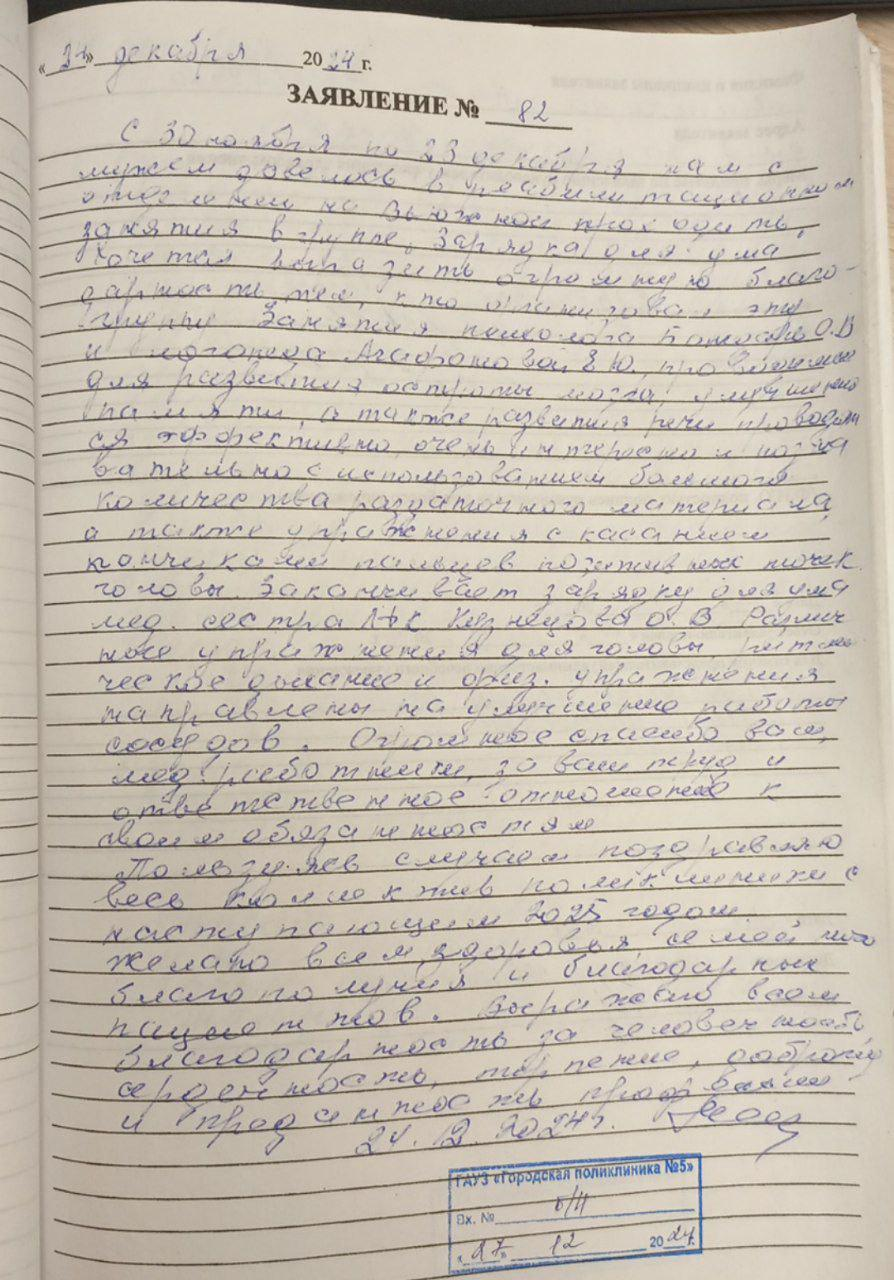 «24» декабря 2024 г.
ЗАЯВЛЕНИЕ № 82
С 30 ноября по 23 декабря нам с
мужем довелось в реабилитационном
отделении на Вьюжной проходить
занятия в группе „Зарядка для ума"
Хочется выразить огромную благо-
дарность тем, кто организовал эту
группу. Занятия психолога О.В
и логопеда Агафоновой Е.Ю.
для развития остроты мозга, улучшению
памяти, а также развития речи проводят
ся эффективно, очень интересно и позна
вательно с использованием большого
количества раздаточного материала,
а также упражнения с касанием
кончиками пальцев позитивных точек
головы. Заканчивает зарядку для ума
мед. сестра Кузнецова О.В. Различ
ные упражнения для головы, ритми
ческое дыхание и физ. упражнения
направлены на улучшение работы
сосудов. Огромное спасибо вам,
мед. работники, за ваш труд и
ответственное отношение к
своим обязанностям
Пользуясь случаем поздравляю
весь коллектив поликлиники с
наступающим 2025 годом
желаю всем здоровья семейного
благополучия и благодарных
пациентов. Выражаю всем
благодарность за человечность
сердечность, терпение, доброту
и преданность профессии
24.12.2024г.
ГАУЗ «Городская поликлиника №5»
Вх. № б/н
«27» 12 2024 г.